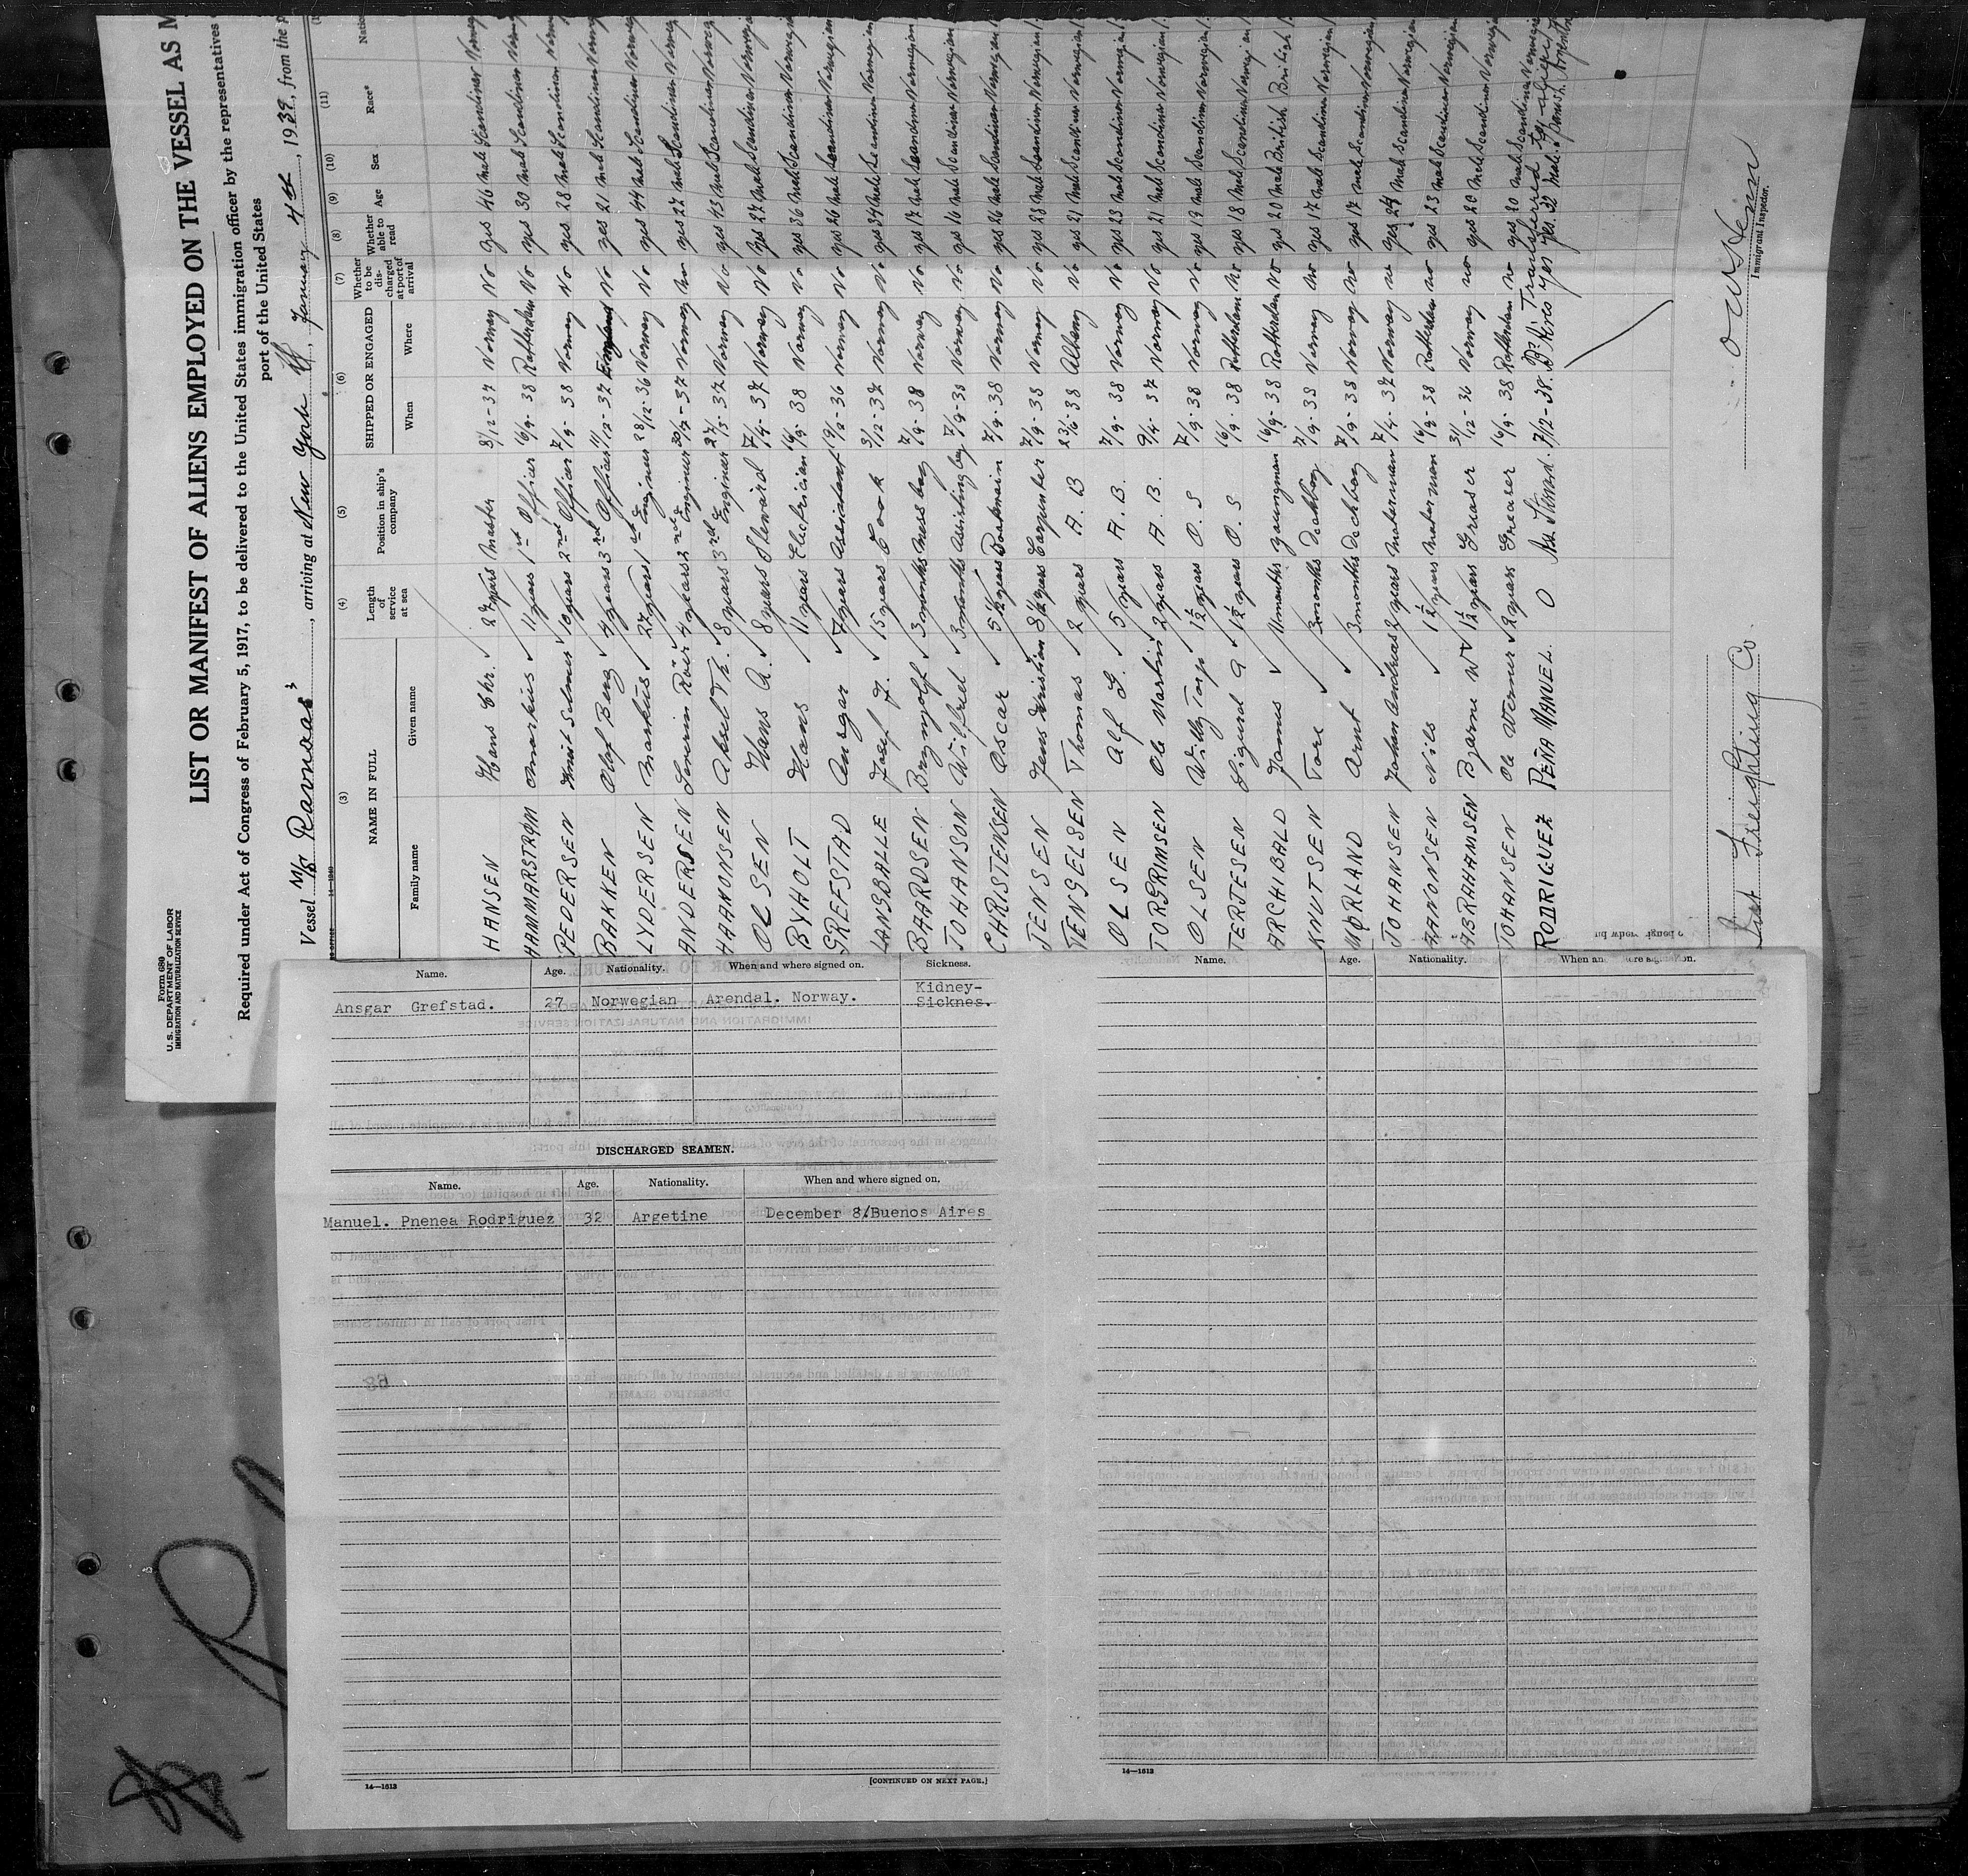 Form 680
U. S. DEPARTMENT OF LABOR
IMMIGRATION AND NATURALIZATION SERVICE
LIST OR MANIFEST OF ALIENS EMPLOYED ON THE VESSEL AS M
Required under Act of Congress of February 5, 1917, to be delivered to the United States immigration officer by the representatives
port of the United States
Vessel M/S Ranvaas, arriving at New York, January 4th, 1939, from the p
(3) (4) (5) (6) (7) (8) (9) (10) (11)
NAME IN FULL Length of service at sea Position in ship's company SHIPPED OR ENGAGED Whether to be discharged at port of arrival Whether able to read Age Sex Race* Natio
Family name Given name When Where
HANSEN Hans Chr. 27 years Master 8/12-37 Norway No yes 46 male Scandinav Norweg
HAMMARSTRØM Markus 11 years 1st Officer 16/9-38 Rotterdam No yes 30 male Scandinav Norweg
PEDERSEN Knut Selmer 10 years 2nd Officer 7/9-38 Norway No yes 28 male Scandinav Norweg
BAKKEN Olaf Berg 4 years 3rd Officer 11/12-37 England No yes 21 male Scandinav Norweg
LYDERSEN Markus 27 years 1st Engineer 28/12-36 Norway No yes 44 male Scandinav Norweg
ANDERSEN 4 years 2nd Engineer Norway No yes 27 male Scandinav Norweg
HAANONSEN Aksel Th. 8 years 3rd Engineer 27/3-37 Norway No yes 43 male Scandinav Norweg
OLSEN Hans A. 8 years Steward 7/4-37 Norway No yes 27 male Scandinav Norwegian
BYHOLT Hans 11 years Electrician 16/9-38 Norway No yes 36 male Scandinav Norwegian
GREFSTAD Ansgar 7 years Assistent 19/12-36 Norway No yes 26 male Scandinav Norwegian
LANGBALLE Josef F. 15 years Cook 3/12-37 Norway No yes 34 male Scandinav Norwegian
BAARDSEN Brynjolf 3 months Mess boy 7/9-38 Norway No yes 17 male Scandinav Norwegian
JOHANSON Wilfred 3 months Assisting boy 7/9-38 Norway No yes 16 male Scandinav Norwegian
CHRISTENSEN Oscar 5½ years Boatswain 7/9-38 Norway No yes 26 male Scandinav Norwegian
JENSEN Jens Kristian 8½ years Carpenter 7/9-38 Norway No yes 28 male Scandinav Norwegian
TENGELSEN Thomas 2 years A. B 23/6-38 Albany No yes 21 male Scandinav Norwegian
OLSEN Alf G. 5 years A. B. 7/9-38 Norway No yes 23 male Scandinav Norwegian
TORGRIMSEN Ole Martin 2 years A. B. 9/4-37 Norway No yes 21 male Scandinav Norwegian
OLSEN Willy Torp 1½ years O. S 7/9-38 Norway No yes 19 male Scandinav Norwegian
TERJESEN Sigurd A 1½ years O. S 16/9-38 Rotterdam No yes 18 male Scandinav Norwegian
ARCHIBALD James 11 months Youngman 16/9-38 Rotterdam No yes 20 male British British
KNUTSEN Tore 3 months Deckboy 7/9-38 Norway no yes 17 male Scandinav Norwegian
MØRLAND Arnt 3 months Deckboy 7/9-38 Norway no yes 17 male Scandinav Norwegian
JOHANSEN Johan Andreas 2 years Motorman 7/4-37 Norway no yes 24 male Scandinav Norwegian
AANONSEN Nils 1½ years Motorman 16/9-38 Rotterdam no yes 23 male Scandinav Norwegian
ABRAHAMSEN Bjarne W 1½ years Greaser 31/12-36 Norway no yes 20 male Scandinav Norwegian
JOHANSEN Ole Werner 2 years Greaser 16/9-38 Rotterdam no yes 20 male Scandinav Norwegian
Transferred to
RODRIGUEZ PEÑA MANUEL. 0 Ass Steward. 7/12-38. B. Aires yes yes. 32 male. Spanish. Argentin
Immigrant Inspector.
Freighting Co.
Name. Age. Nationality. When and where signed on. Sickness.
Ansgar Grefstad. 27 Norwegian Arendal. Norway. Kidney-Sicknes.
DISCHARGED SEAMEN.
Name. Age. Nationality. When and where signed on.
Manuel. Pnenea Rodriguez 32 Argetine December 8/Buenos Aires
14—1613
[CONTINUED ON NEXT PAGE.]
Name. Age. Nationality. When and where signed on.
14—1613